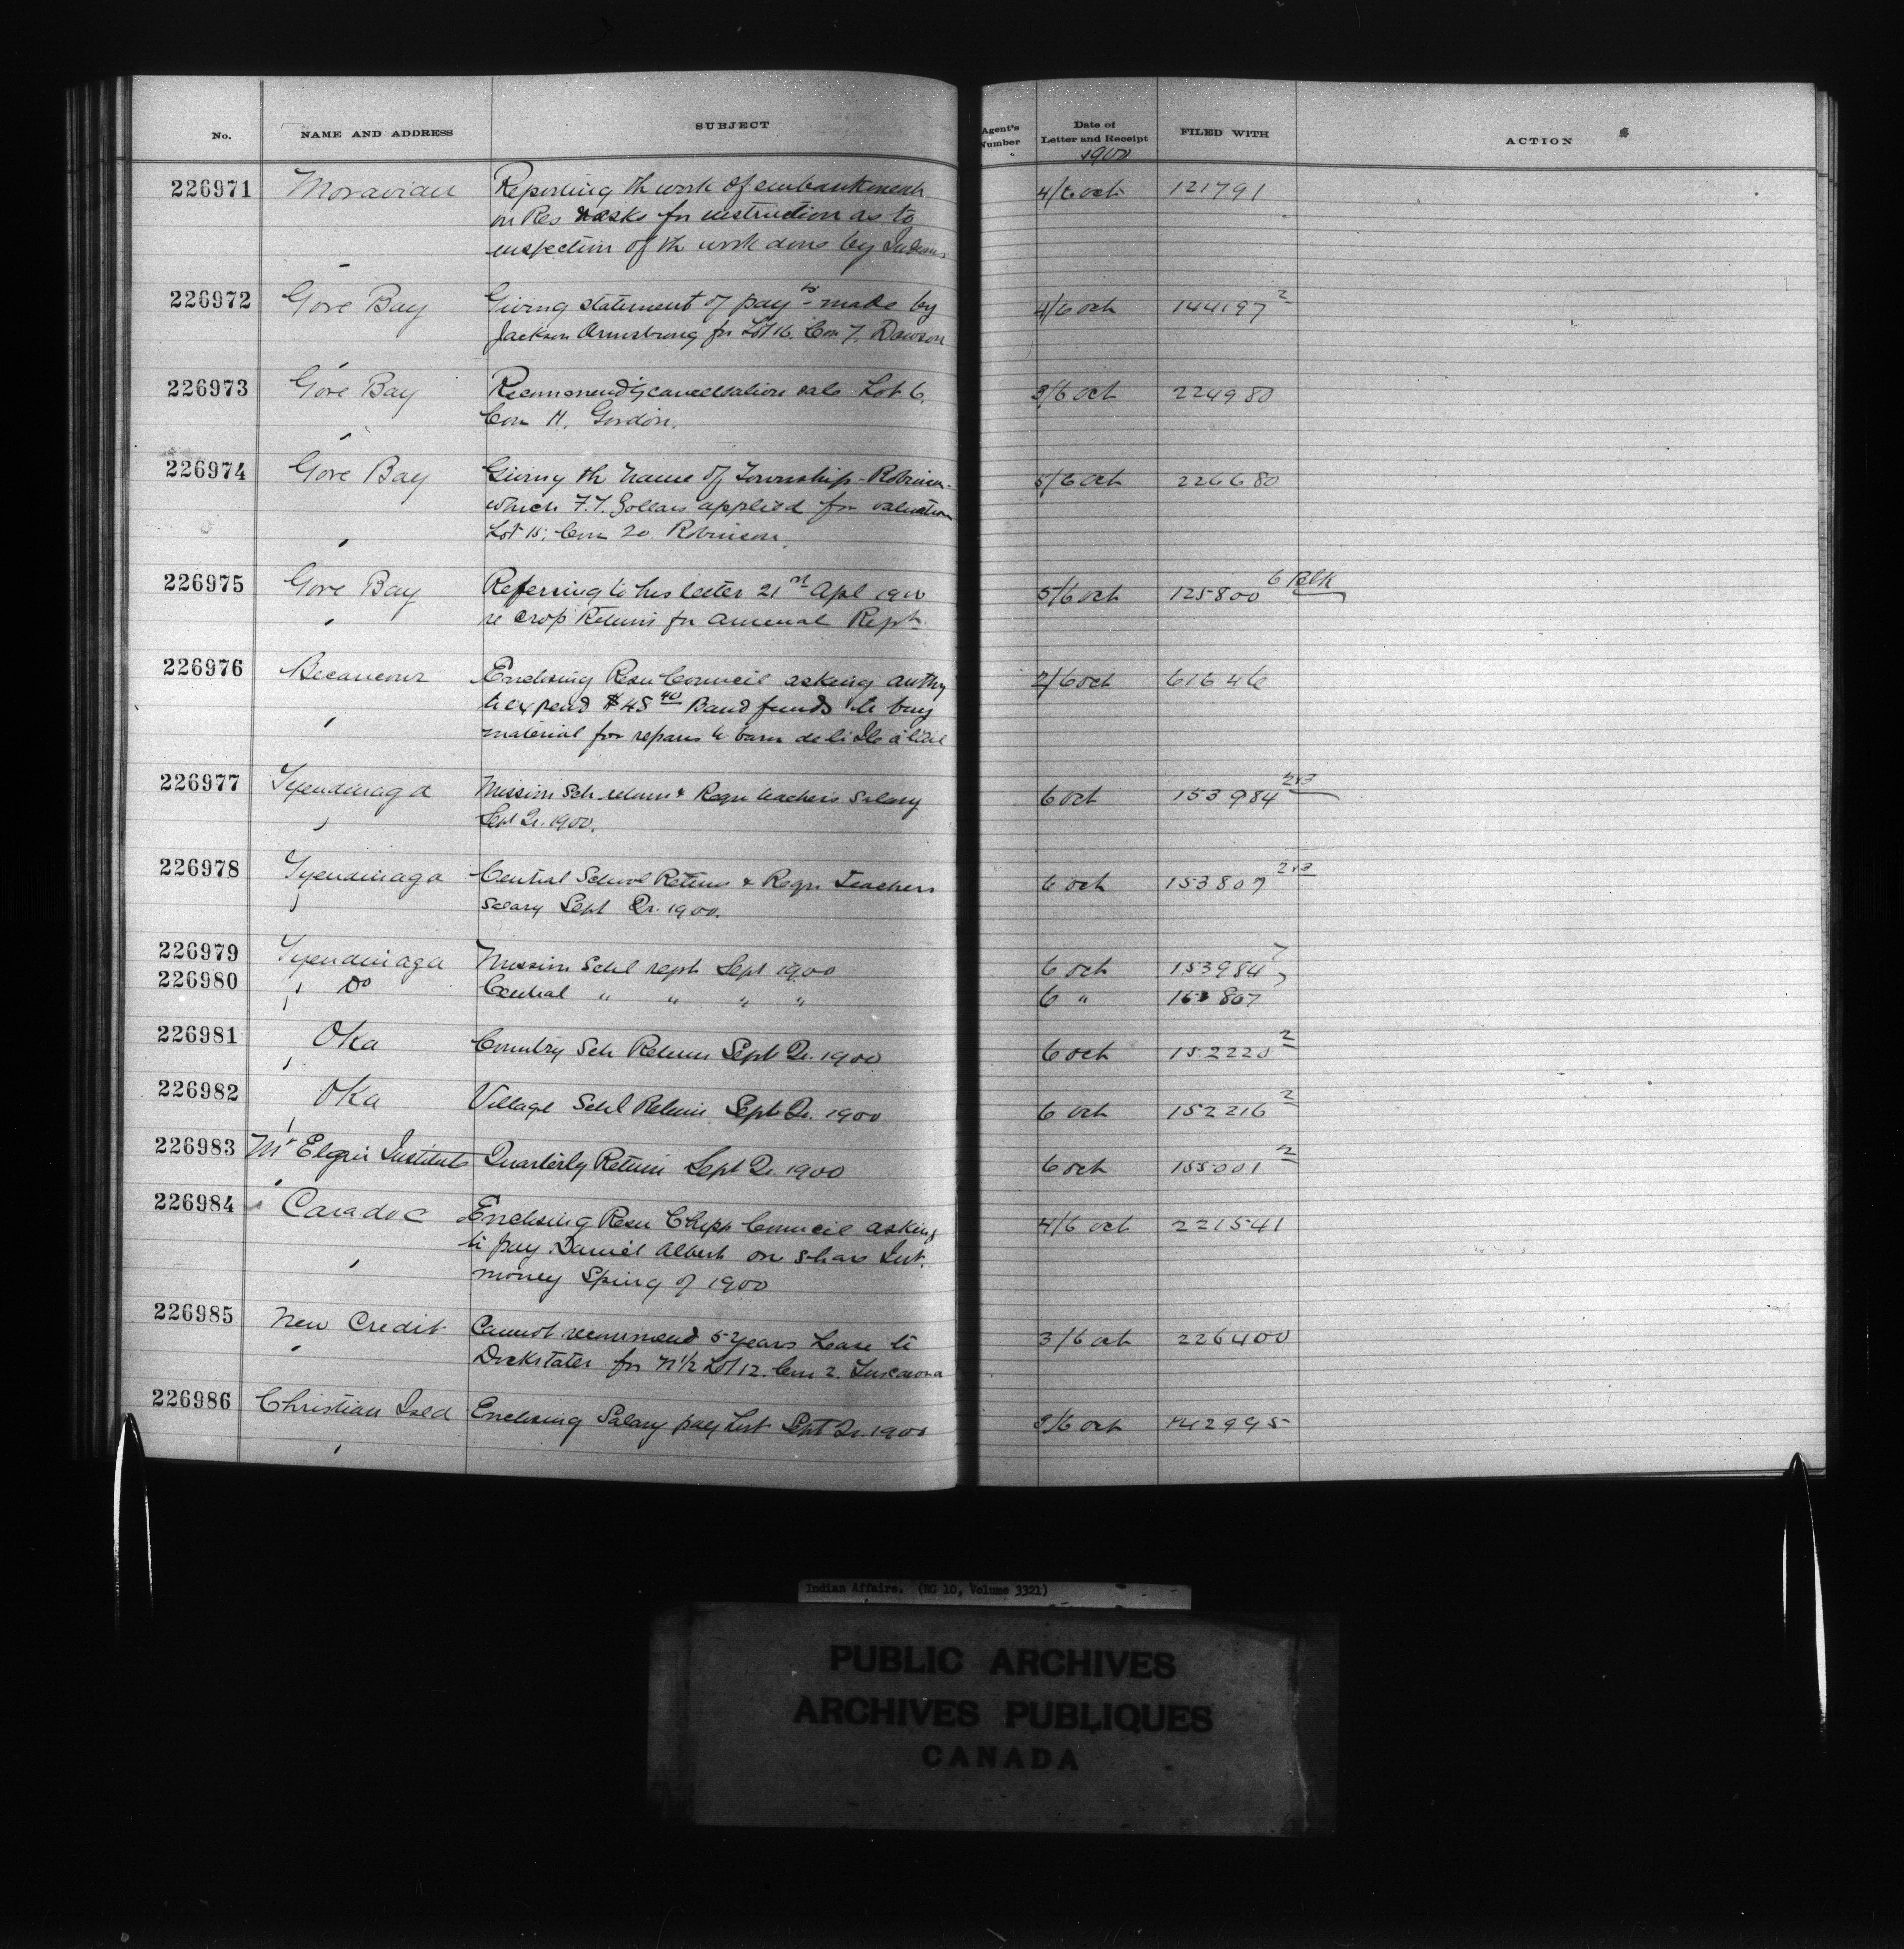 No. NAME AND ADDRESS SUBJECT Agent's Number Date of Letter and Receipt FILED WITH ACTION
1900
226971 Moravian Reporting th work of embankment 4/6 oct 121791
on Res & asks for instruction as to
inspection of th work done by Indians
226972 Gore Bay Giving statement of payts made by 4/6 oct 144197 2
Jackson Armstrong for Lot 16. Con 7. Dawson
226973 Gore Bay Recommend'g cancellation sale Lot 6, 3/6 oct 224980
Con 11. Gordon.
226974 Gore Bay Giving th name of Township - Robinson - 5/6 oct 226680
which F.T. applied for valuation
Lot 15, Con 20. Robinson.
226975 Gore Bay Referring to his letter 21st Apl 1900 5/6 oct 125800 6 Blk
re crop Returns for annual Rept.
226976 Becancour Enclosing Resn Council asking authy 2/6 oct 61646
to expend $48 40 Band funds to buy
material for repairs to barn de
226977 Tyendinaga Mission Sch return & Reqn teachers Salary 6 oct 153984 2&3
Sept Qr. 1900.
226978 Tyendinaga Central School Return & Reqn Teachers 6 oct 153807 2&3
Salary Sept Qr. 1900.
226979 Tyendinaga Mission Schl rept Sept 1900 6 oct 153984
226980 Do Central " " " " 6 " 153807
226981 Oka Country Sch Return Sept Qr. 1900 6 oct 152220 2
226982 Oka Village Schl Return Sept Qr. 1900 6 oct 152216 2
226983 Mt Elgin Institute Quarterly Return Sept Qr. 1900 6 oct 155001 2
226984 Caradoc Enclosing Resn Chipp Council asking 4/6 oct 221541
to pay Daniel Albert one share Int.
money Spring of 1900
226985 New Credit Cannot recommend 5 years Lease to 3/6 oct 226400
Dockstater for N 1/2 Lot 12. Con 2. Tuscarora
226986 Christian Isld Enclosing Salary pay list Sept Qr. 1900 3/6 oct 142995
Indian Affairs. (RG 10, Volume 3321)
PUBLIC ARCHIVES
ARCHIVES PUBLIQUES
CANADA